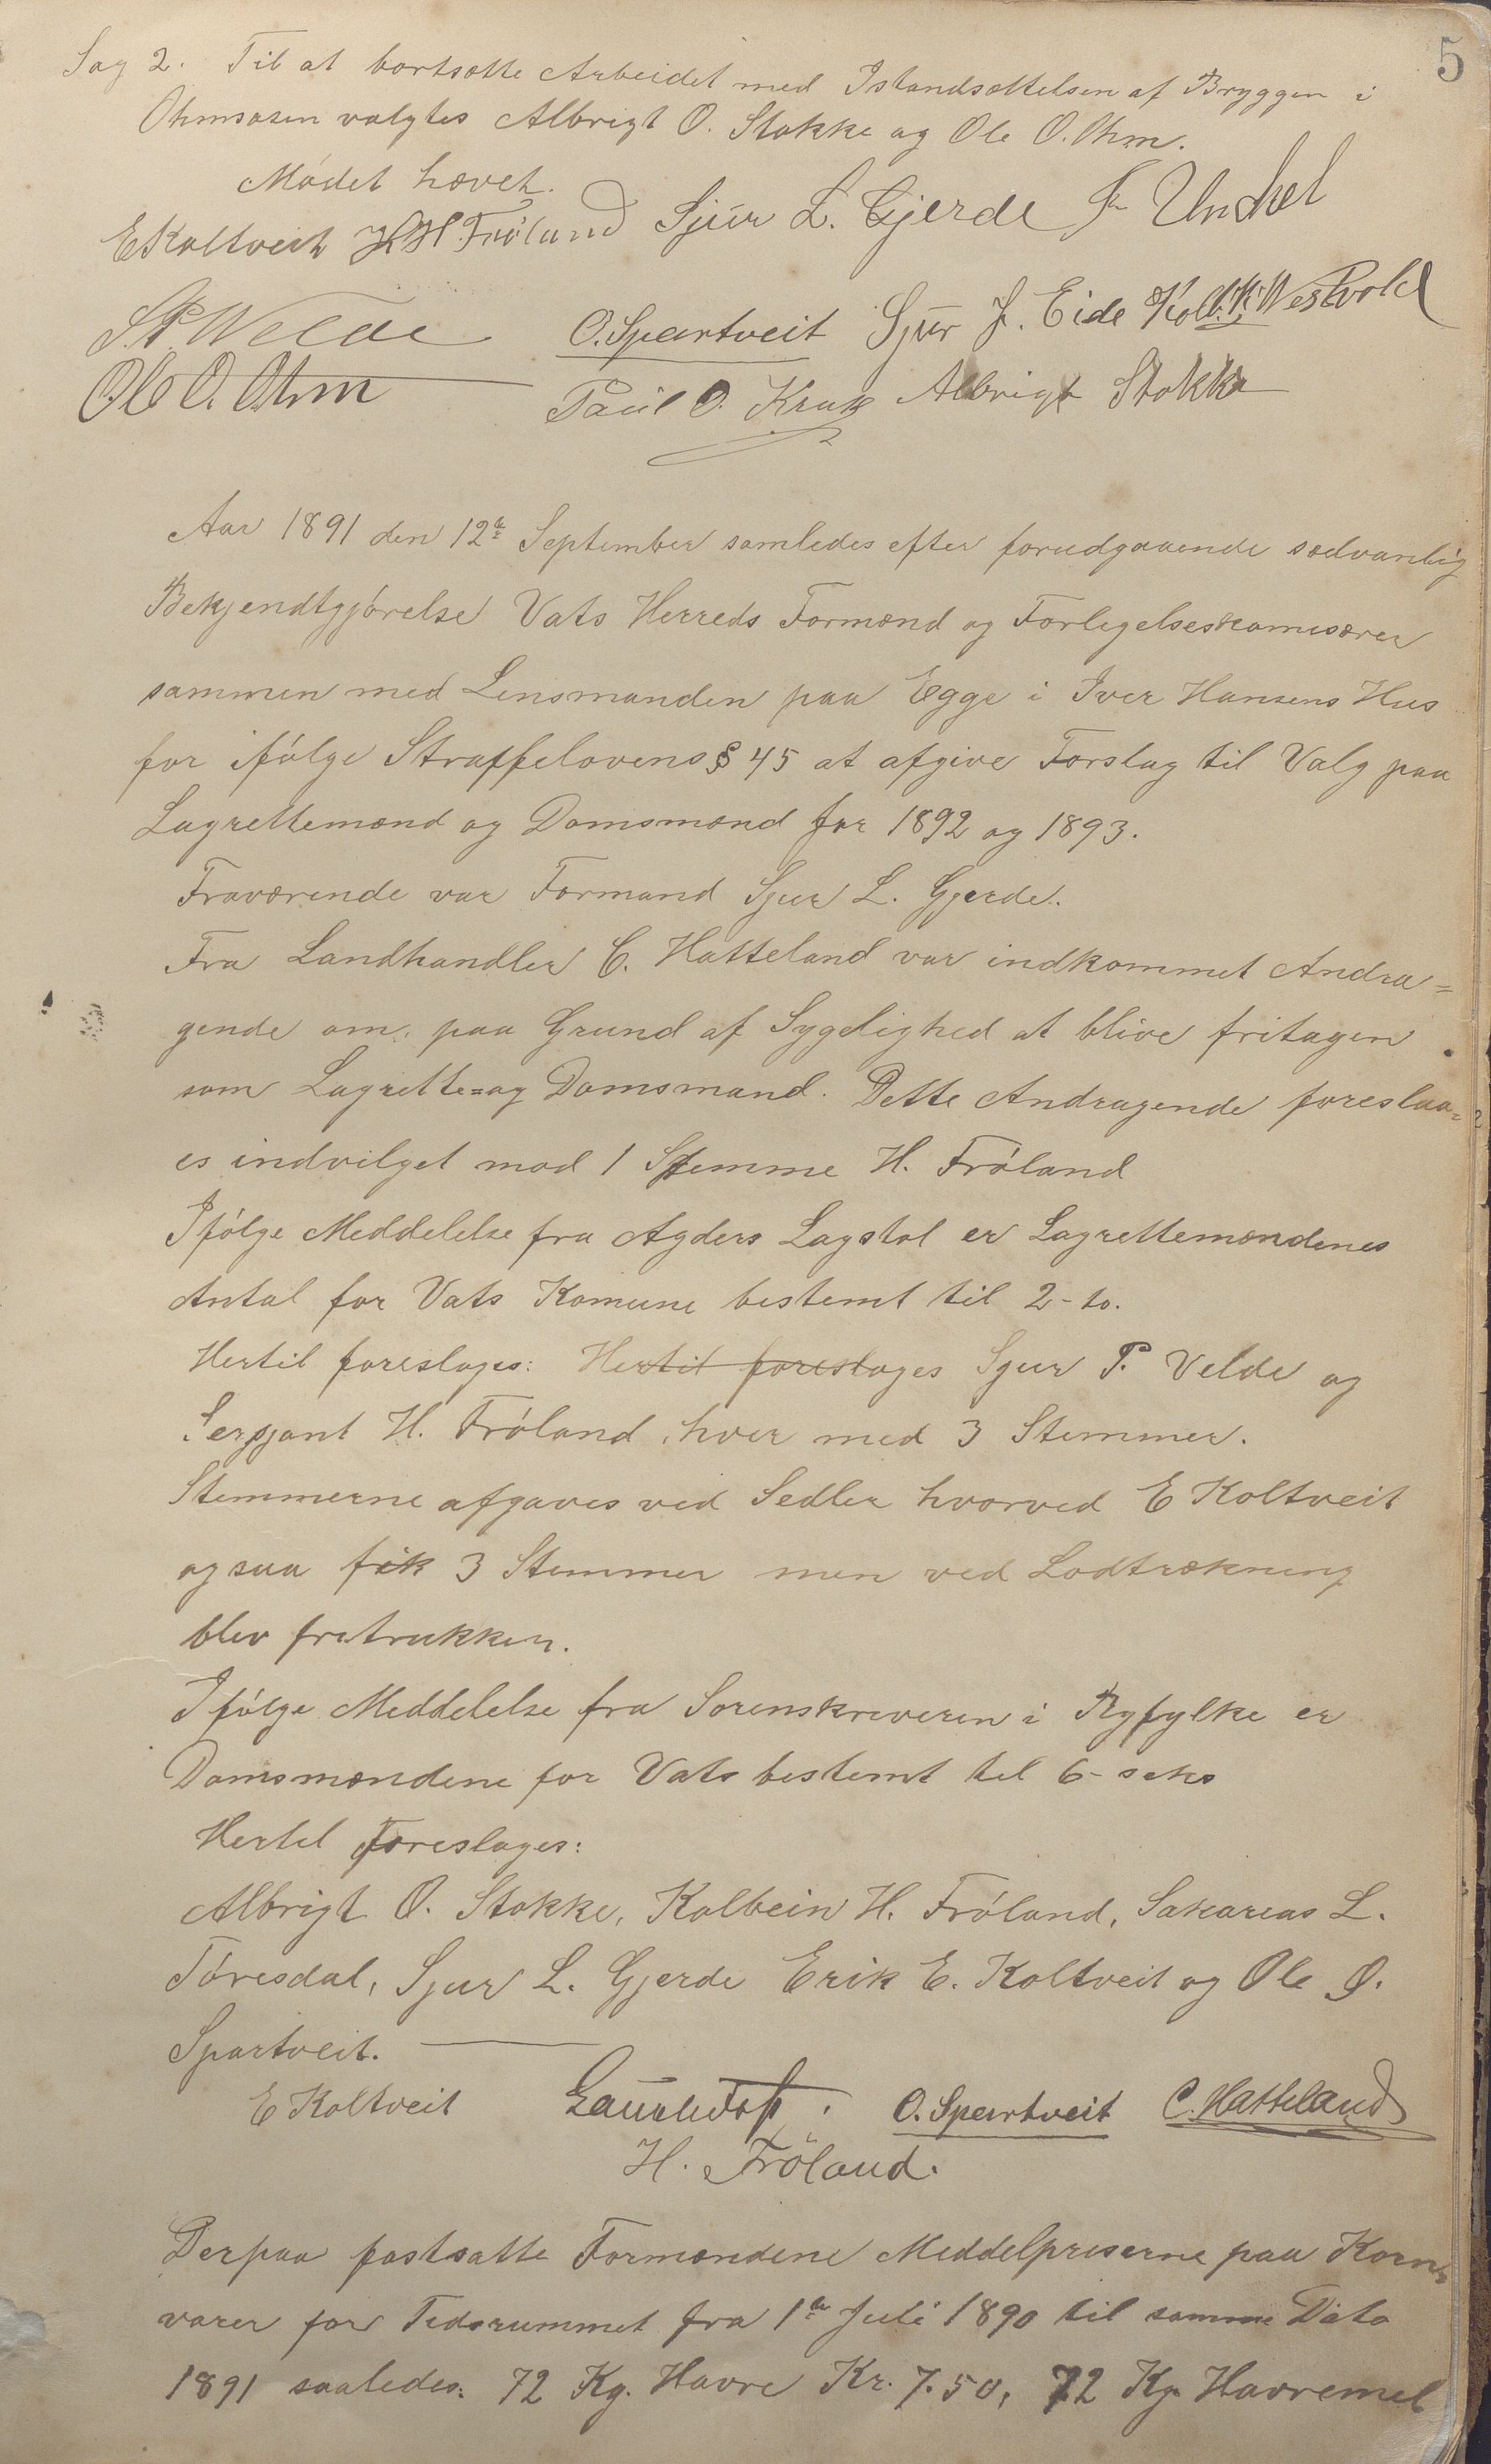 5
Sag 2. Til at bortsætte Arbeidet med Istandsættelsen af Bryggen i
Ohmsosen valgtes Albrigt O. Stokke og Ole O. Ohm.
Mødet hævet.
E Koltveit H H Frøland Sjur L. Gjerde
S P Velde O. Spartveit Sjur J. Eide Kolb. K. Westvold
Ole O. Ohm Paul O. Krak Albrigt Stokke
Aar 1891 den 12te September samledes efter forudgaaende sædvanlig
Bekjendtgjørelse Vats Herreds Formænd og Forligelseskomisærer
sammen med Lensmanden paa Egge i Iver Hansens Hus
for ifølge Straffelovens § 45 at afgive Forslag til Valg paa
Lagrettemænd og Domsmænd for 1892 og 1893.
Fraværende var Formand Sjur L. Gjerde.
Fra Landhandler C. Hatteland var indkommet Andra=
gende om, paa Grund af Sygelighed at blive fritagen
som Lagrette= og Domsmand. Dette Andragende foreslaa=
es indvilget mod 1 Stemme H. Frøland
Ifølge Meddelelse fra Agders Lagstol er Lagrettemændenes
Antal for Vats Komune bestemt til 2 - to.
Hertil foreslages: Hertil foreslages Sjur P. Velde og
Sersjant H. Frøland, hver med 3 Stemmer.
Stemmerne afgaves ved Sedler hvorved E Koltveit
ogsaa fik 3 Stemmer men ved Lodtrækning
blev fratrukken.
Ifølge Meddelelse fra Sorenskriveren i Ryfylke er
Domsmændene for Vats bestemt til 6 - seks
Hertil foreslages:
Albrigt O. Stokke, Kolbein H. Frøland, Sakarias L.
Tøresdal, Sjur L. Gjerde Erik E. Koltveit og Ole O.
Spartveit.
E Koltveit O. Spartveit C. Hatteland
H. Frøland.
Derpaa fastsatte Formændene Middelpriserne paa Korn=
varer for Tidsrummet fra 1ste Juli 1890 til samme Dato
1891 saaledes: 72 Kg. Havre Kr. 7.50, 72 Kg. Havremel